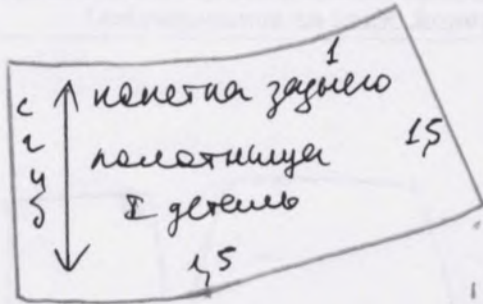 1
кокетка заднего
полотнища
1,5
I деталь
1,5
сгиб